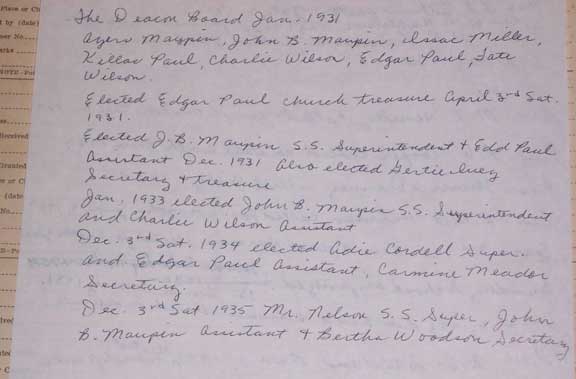 Place or Ch
by (date)
The Deacon Board Jan. 1931
Ayers Maupin, John B. Maupin, Issac Miller,
Paul, Charlie Wilson, Edgar Paul, Tate
Wilson.
Elected Edgar Paul church treasure April 3rd Sat.
1931.
Elected J.B. Maupin S.S. Superintendent & Edd Paul
Assistant Dec. 1931 Also elected Gertie
Secretary & treasure
Jan. 1933 elected John B. Maupin S.S. Superintendent
and Charlie Wilson Assistant
Dec. 3rd Sat. 1934 elected Adie Cordell Super.
and Edgar Paul Assistant, Carmine Meador
Secretary.
Dec. 3rd Sat 1935 Mr. Nelson S.S. Super, John
B. Maupin Assistant & Bertha Woodson Secretary